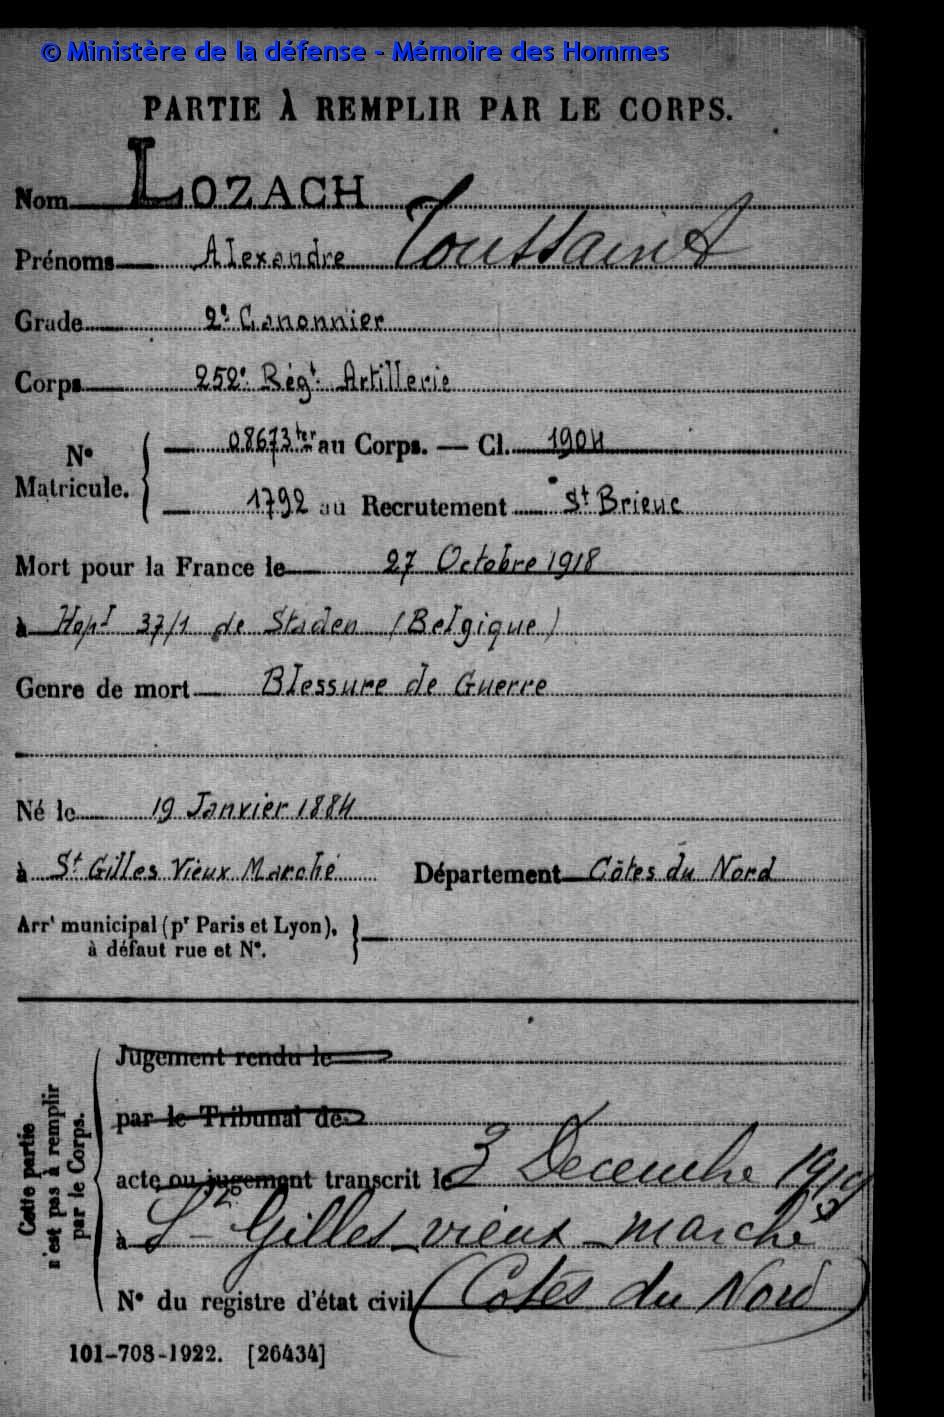 © Ministère de la défense - Mémoire des Hommes
PARTIE À REMPLIR PAR LE CORPS.
Nom LOZACH
Prénoms Alexandre Toussaint
Grade 2e Canonnier
Corps 252e Régt Artillerie
N° Matricule. { 08673 ter au Corps. — Cl. 1904
1792 au Recrutement St Brieuc
Mort pour la France le 27 Octobre 1918
à Hopl 37/1 de Staden (Belgique)
Genre de mort Blessure de Guerre
Né le 19 Janvier 1884
à St Gilles Vieux Marché Département Côtes du Nord
Arrt municipal (pr Paris et Lyon),
à défaut rue et N°.
Cette partie
n'est pas à remplir
par le Corps.
Jugement rendu le
par le Tribunal de
acte ou jugement transcrit le 3 Decembre 1919
à St Gilles-vieux-marché
N° du registre d'état civil (Cotes du Nord)
101-708-1922. [26434]